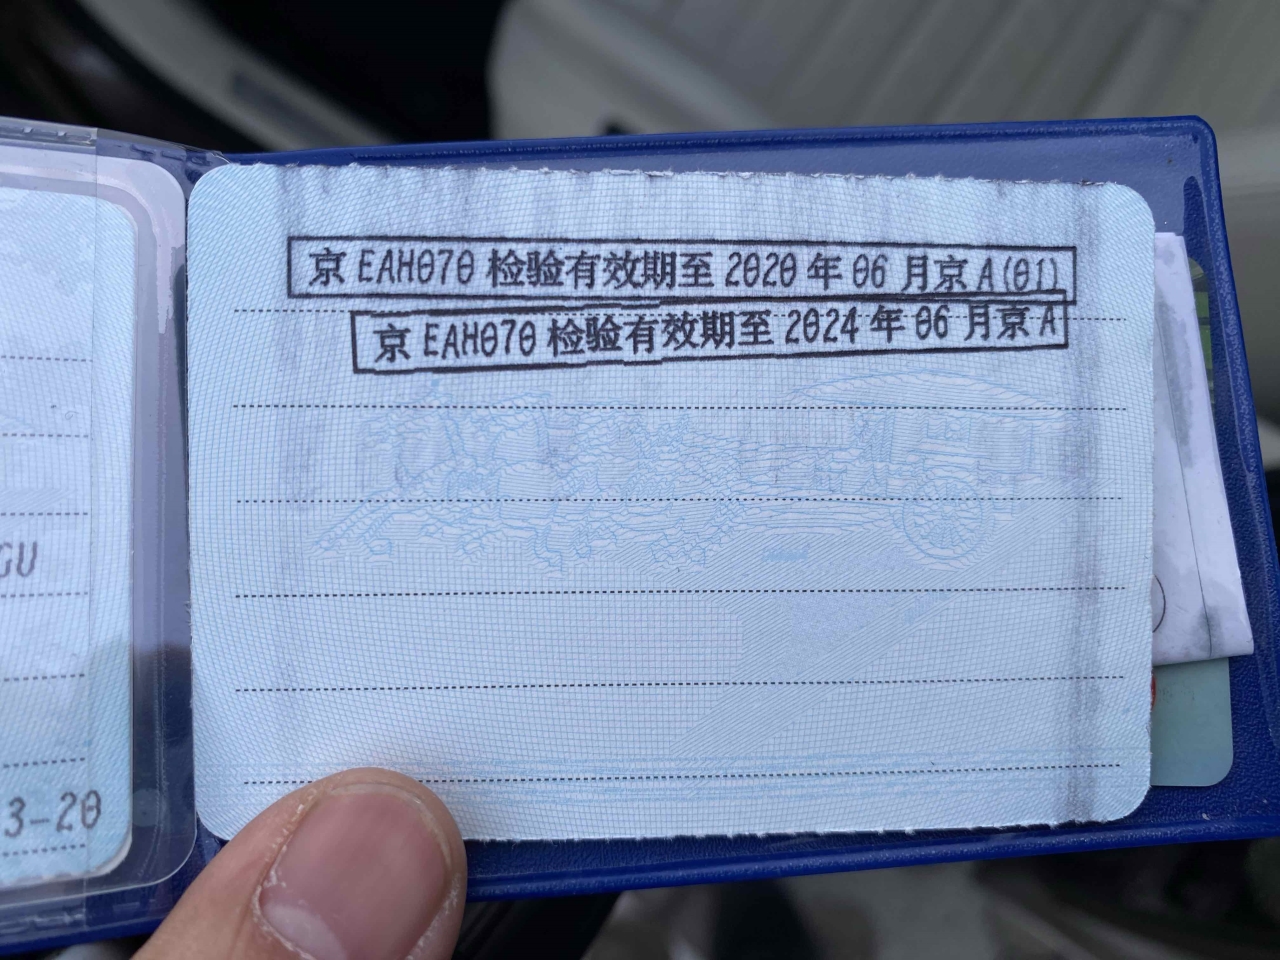 京 EAH070 检验有效期至 2020 年 06 月京 A(01)
京 EAH070 检验有效期至 2024 年 06 月京 A
GU
3-20